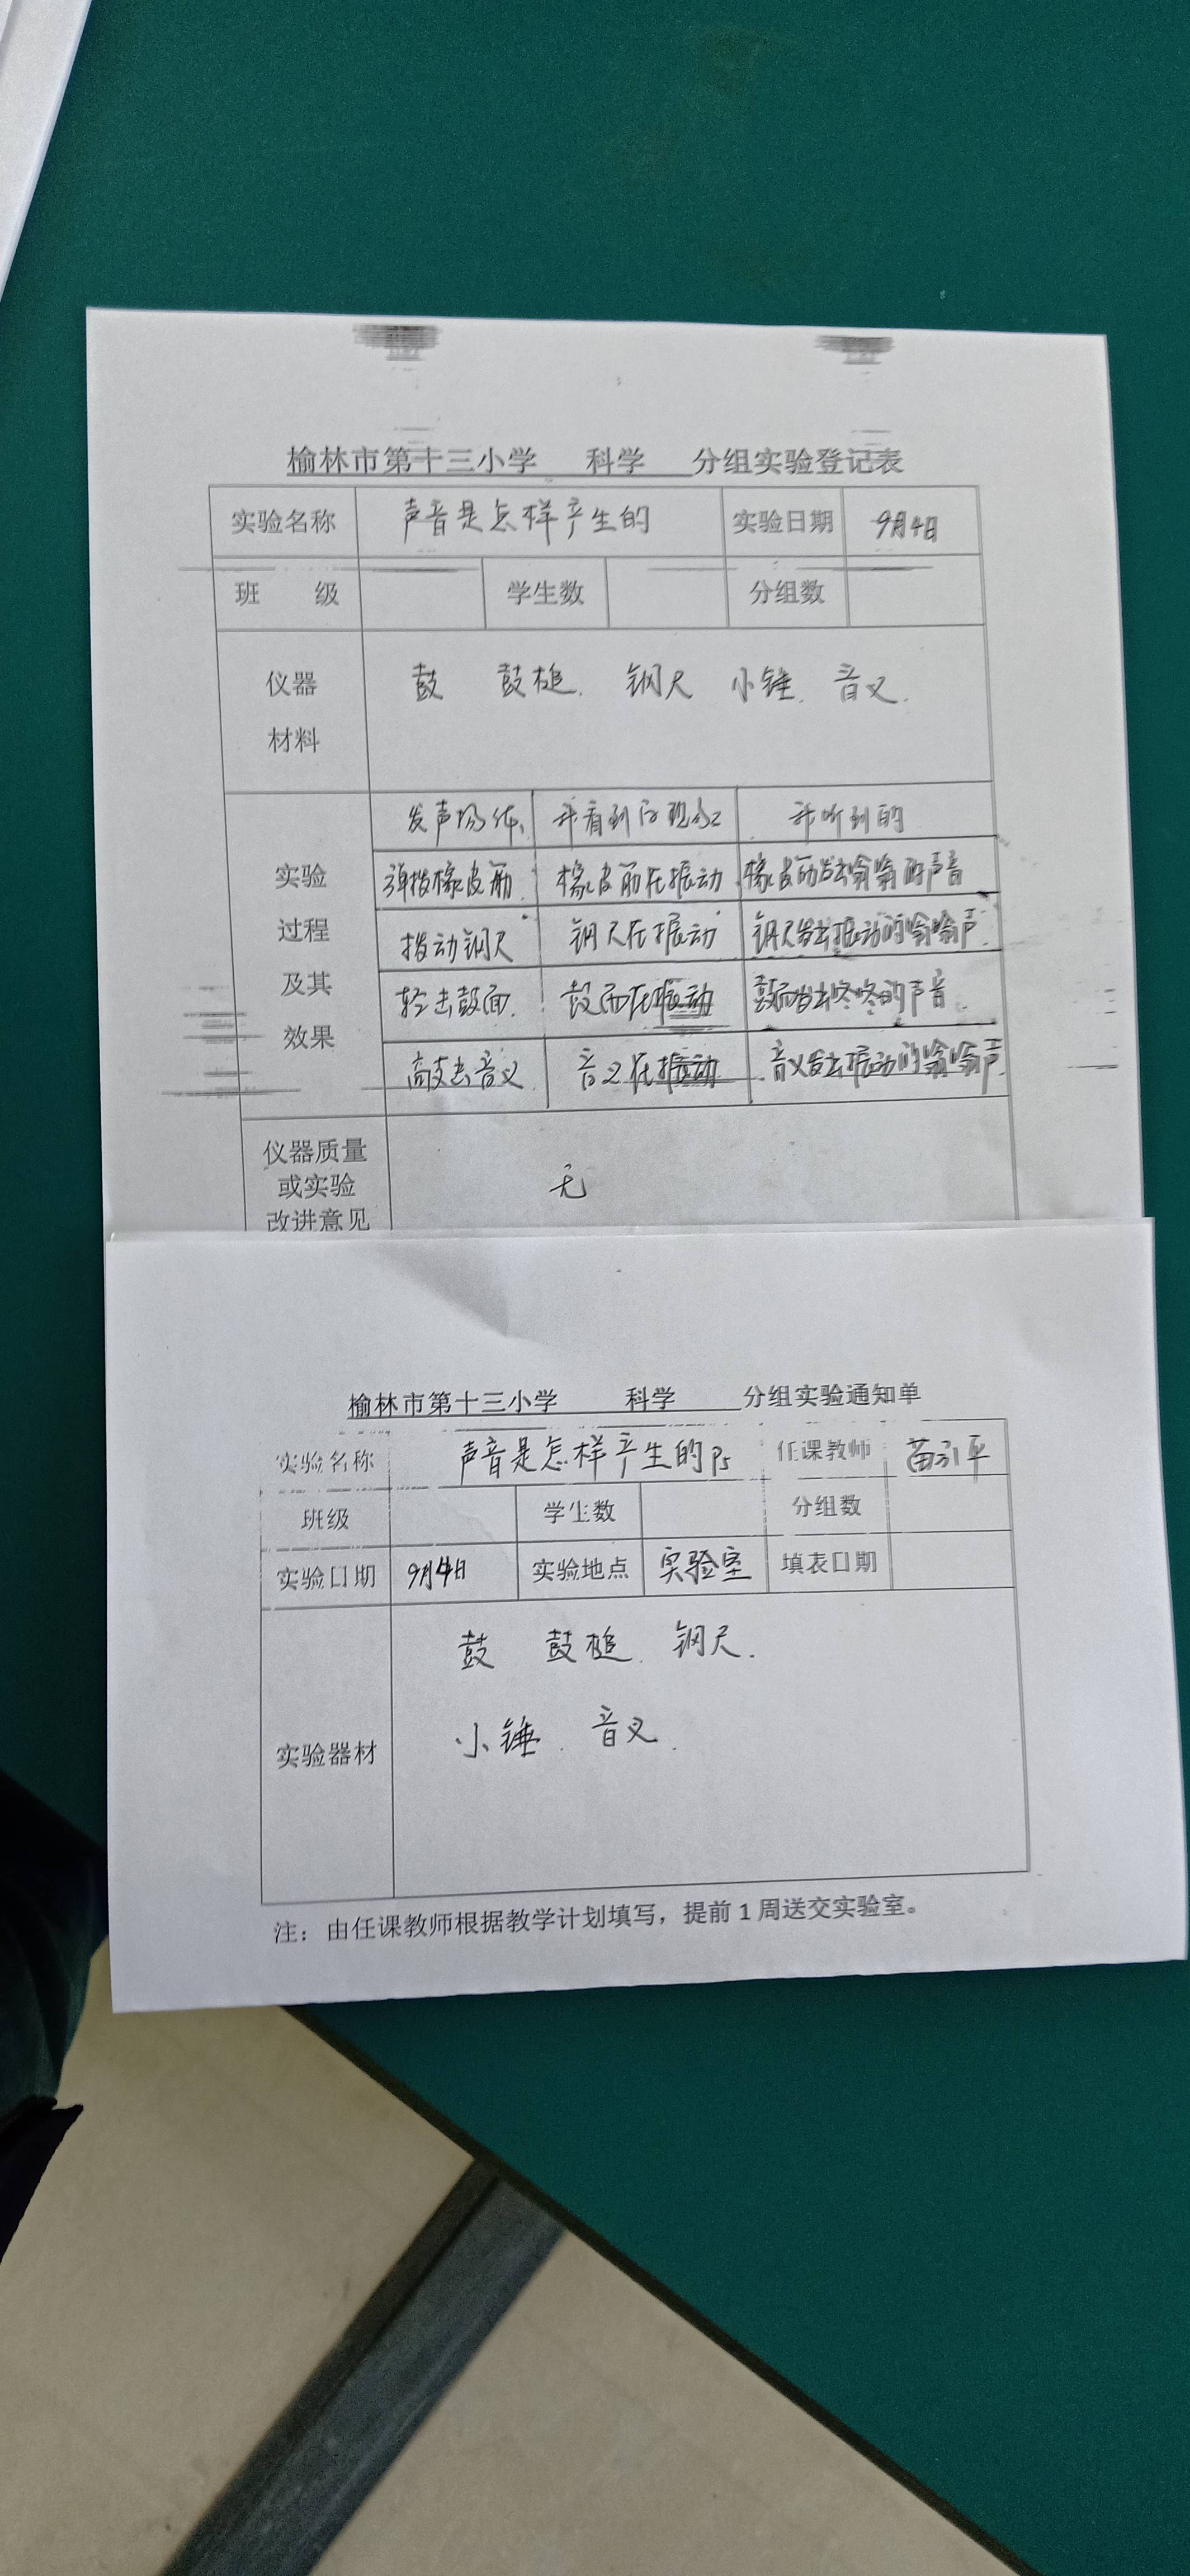 榆林市第十三小学 科学 分组实验登记表
实验名称 声音是怎样产生的 实验日期 9月4日
班 级 学生数 分组数
仪器 鼓 鼓槌. 钢尺 小锤. 音叉.
材料
发声物体 我看到的现象 我听到的
实验 弹拨橡皮筋. 橡皮筋在振动 橡皮筋发出嗡嗡的声音
过程 拨动钢尺 钢尺在振动 钢尺发出振动的嗡嗡声.
及其 轻击鼓面. 鼓面在振动 鼓面发出咚咚的声音.
效果 敲击音叉 音叉在振动 音叉发出振动的嗡嗡声.
仪器质量
或实验 无
改进意见
榆林市第十三小学 科学 分组实验通知单
实验名称 声音是怎样产生的P5 任课教师 苗引平
班级 学生数 分组数
实验日期 9月4日 实验地点 实验室 填表日期
鼓 鼓槌. 钢尺.
小锤. 音叉.
实验器材
注：由任课教师根据教学计划填写，提前1周送交实验室。